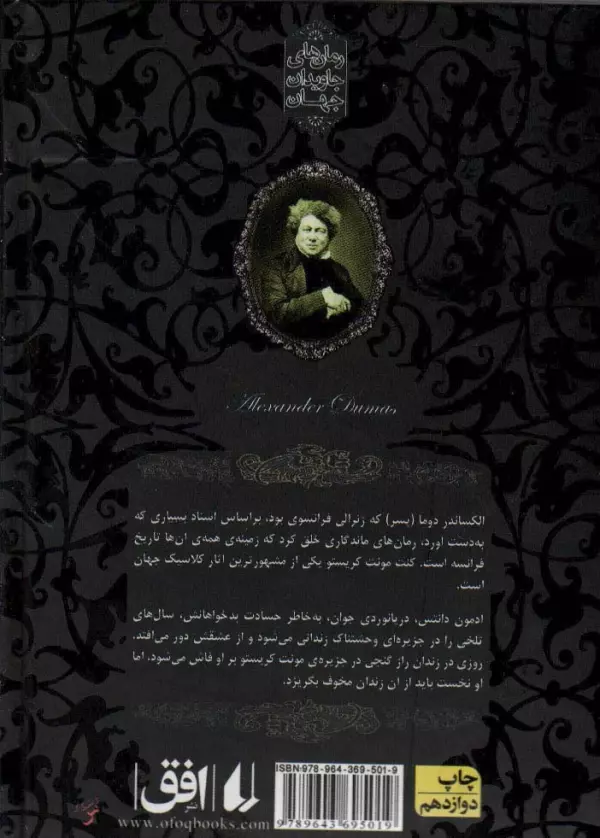 رمان‌های
جاویدان
جهان
Alexander Dumas
الکساندر دوما (پسر) که ژنرالی فرانسوی بود، براساس اسناد بسیاری که
به‌دست آورد، رمان‌های ماندگاری خلق کرد که زمینه‌ی همه‌ی آن‌ها تاریخ
فرانسه است. کنت مونت کریستو یکی از مشهورترین آثار کلاسیک جهان
است.
ادمون دانتس، دریانوردی جوان، به‌خاطر حسادت بدخواهانش، سال‌های
تلخی را در جزیره‌ای وحشتناک زندانی می‌شود و از عشقش دور می‌افتد.
روزی در زندان راز گنجی در جزیره‌ی مونت کریستو بر او فاش می‌شود، اما
او نخست باید از آن زندان مخوف بگریزد.
نشر افق
www.ofoqbooks.com
ISBN-978-964-369-501-9
9 789643 695019
چاپ
دوازدهم